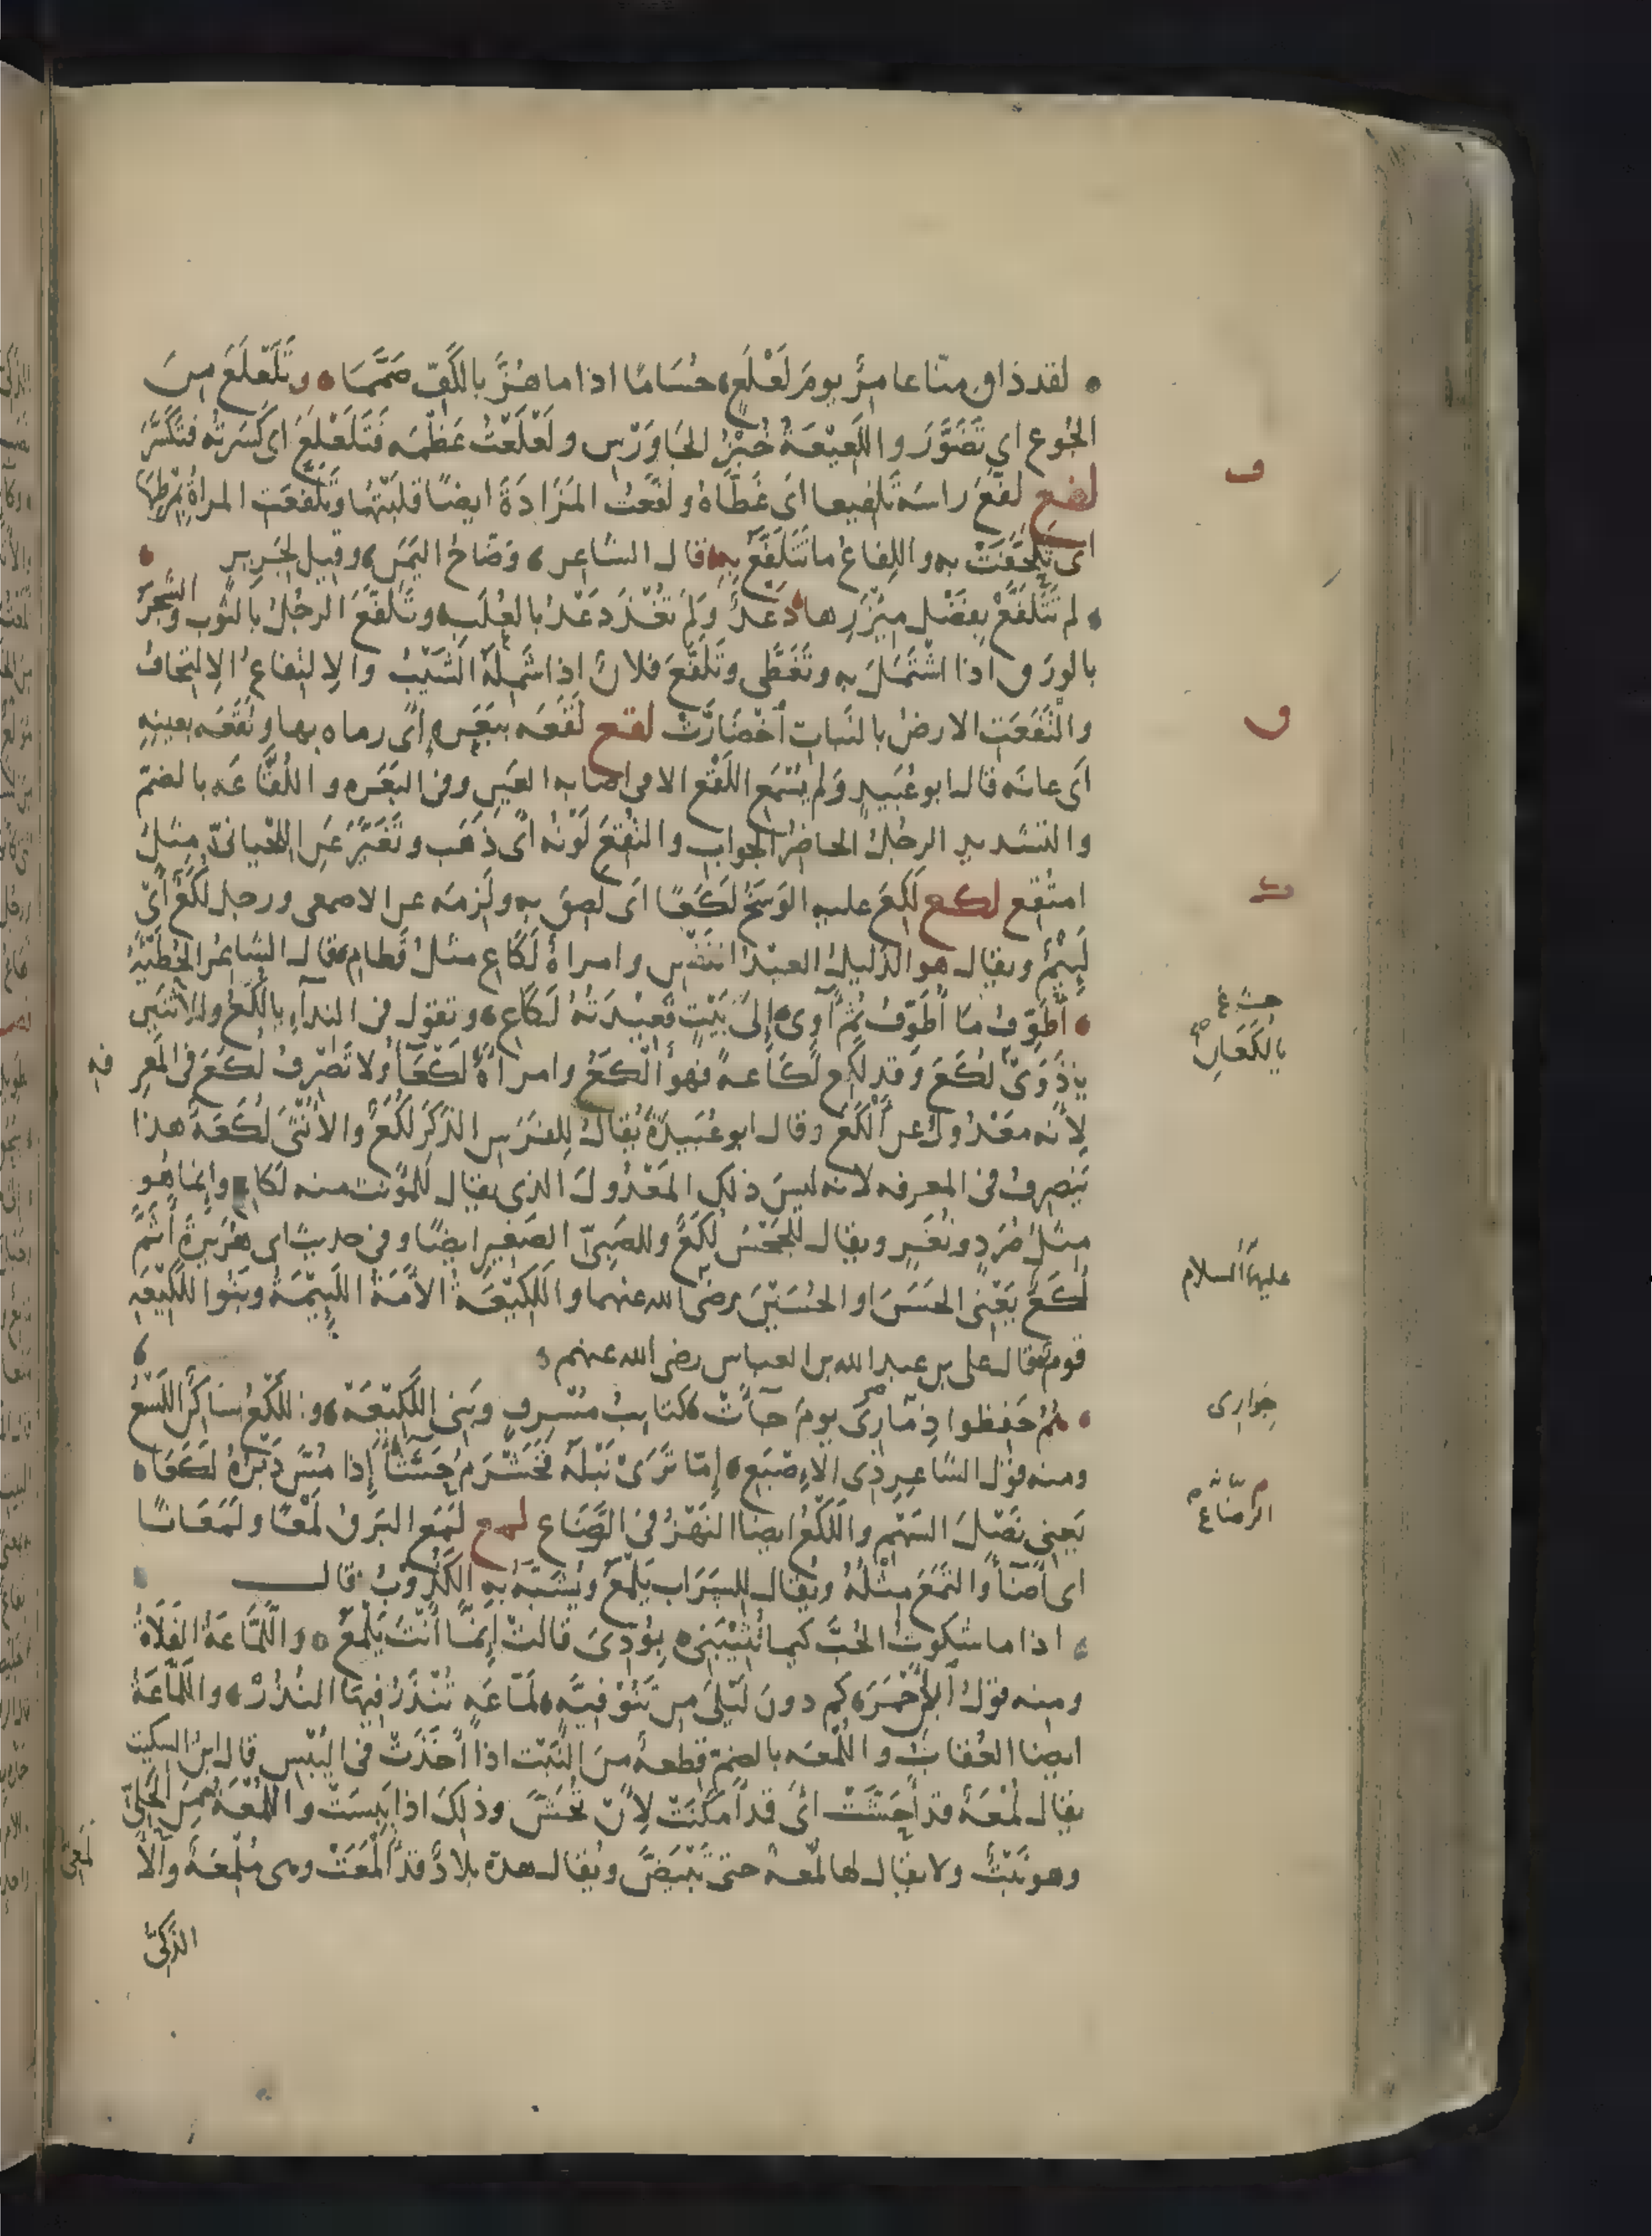 لقد ذاق منّا عامرٌ يومَ لَعْلَعٍ حُسَامًا اذا ما هُزَّ بالكَفِّ صَمَّمَا وتَلَعْلَعَ مِنَ
الجُوع اي تَضَوَّرَ واللَّعِيْعَةُ خُبْزُ الجَاوَرْسِ ولَعْلَعْتُ عَظْمَه فَتَلَعْلَعَ اى كَسَرتُه فتَكَسَّرَ
لفع لفّعَ راسَه تَلفيعا اى غَطَّاهُ ولفَّعْتُ المَزَادَةَ ايضًا قلَبْتُها وتَلَفَّعَتِ المراةُ بِمِرْطِهَا
اى تَلَحَّفَتْ به واللِفاعُ ما تُتَلَفَّعُ بِهِ قال الشاعر وَضّاحُ اليَمَنِ وقيل لجَرِيرِ
لم تَتَلَفَّعْ بِفَضْلِ مِئْزَرِها دَعْدٌ وَلَم تُغْذَ دَعْدُ بالعُلَبِ وتَلَفَّعَ الرجُلُ بالثوب والشَّجَرُ
بالورَق اذا اشْتَمَلَ به وتَغَطَّى وتَلَفَّعَ فلانٌ اذا شَمِلَهُ الشَّيْبُ والاِلتِفاعُ الاِلتِحافُ
والْتَفَعَتِ الارضُ بالنَباتِ اخْضَارَّتْ لقع لَقَعَه ببَعَرةٍ اى رماه بها ولَقَعَه بعينِهِ
اَى عانَه قال ابو عُبَيدٍ وَلم يُسْمَعِ اللَقْعُ الا فى اصابه العَينِ وفى البَعَرةِ واللُقّاعَه بالضمّ
والتشديد الرجُلُ الحاضِرُ الجواب والتُقِعَ لَوْنُه اى ذَهَب وتَغَيَّرَ عَنِ اللِحْيانىّ مِثلُ
امتُقِع لكع لَكِعَ عليه الوَسَخُ لَكَعًا اى لصِقَ بِهِ ولَزِمَه عن الاصمعى ورجل لُكَعٌ اىْ
لَئِيْمٌ ويقال هو الذليلُ العبْدُ النَفْسِ وامراةٌ لَكَاعِ مثلُ قَطامِ قال الشاعرُ الحُطَيْئَةُ
أُطَوِّفُ مَا أُطَوِّفُ ثُمَّ آوِى إِلى بَيْتٍ قَعِيْدَتُهُ لَكَاعِ وتقول فى النِدآءِ يا لُكَعُ وللاثنَينِ
يا ذَوَىْ لُكَعَ وقد لكِع لَكَاعةً فهو أَلْكَعُ وامراَةٌ لَكْعَآءُ ولا تَصْرِفُ لُكَعَ فى المَعرِفهِ
لِأنه مَعْدُولٌ عن أَلْكَعَ وقال ابو عُبَيدَةَ يُقالُ لِلفَرَسِ الذَكَرِ لُكَعٌ والانْثَى لُكَعَةٌ هذا
يَنصرِفُ فى المعرفه لانه ليسَ ذلك المَعْدُولَ الذى يقال لِلمُؤنث منه لكاعِ وإنما هُو
مِثلُ صُرَدٍ ونُغَرٍ ويقال للجَحْشِ لُكَعٌ وللصَبِىّ الصَغِيرِ ايضًا وفى حديث ابى هُرَيرةَ أَثَمَّ
لُكَعُ يَعْنى الحَسَنَ او الحُسَيْنَ رضى الله عنهما واللَكِيْعَةُ الأَمَةُ اللَئِيْمَةُ وبَنُوا اللَّكِيْعَهِ
قومٌ قال على بن عبد الله بن العباس رضى الله عنهم
هُمُ حَفِظوا ذِمارِىَ يومَ جآءَتْ كتايبُ مُسْرِفٍ وبَنِى اللَّكِيْعَهْ واللَّكْعُ سَاكنًا اللَسْعُ
ومنه قوْلُ الشاعرِ ذى الإِصْبَعِ إمّا تَرَىْ نَبْلَهُ فَخَشْرَمُ خَشّآءَ إِذا مُسَّ دَبْرُهُ لَكَعَا
يَعنى نَصْلَ السَهْمِ واللَّكْعُ ايضا النَهْزُ فى الرَّضَاعِ لمع لَمَعَ البَرقُ لَمْعًا ولَمَعَانًا
اى أَضآءَ والتَمَعَ مِثْلُهُ ويُقال لِلسَرَابِ يَلْمَعٌ ويُشَبَّهُ بِهِ الكَذُوْبُ قال
اذا ما شكوتُ الحُبَّ كيما تُثِيْبَنِى بِوُدِّىَ قالتْ إِنَّمَا أَنْتَ يَلْمَعُ واللَّمَّاعَةُ الفَلَاةُ
ومنه قوْلُ ابن أَحْمَرَ كم دونَ لَيْلَى مِن تَنُوْفِيَّهٍ لَمّاعَهٍ تُنْذَرُ فِيهَا النُذُرْ واللَمّاعَةُ
ايضا العُقابُ واللُمْعَه بالضمّ قِطعةٌ مِنَ النَّبْتِ اذا أَخَذَتْ فى اليُبْسِ قال ابنُ السكيت
يقال لُمْعَةٌ قد أَحَشَّتْ اىْ قد أَمكَنَتْ لِأَنْ تُحَشَّ وذلِكَ اذا يَبِسَتْ واللُمْعَةُ مِنَ الحَلِىِّ
وهو نَبْتٌ ولا يقال لها لُمْعهٌ حتى تَبْيَضَّ ويُقال هذه بلادٌ قد أَلْمَعَتْ وهى مُلْمِعَةٌ والأَلْمَعِىُّ
الذَكِىُّ
ف
ق
ك
يا لَكَعَانِ
عليهما السلام
جوارى
الرضاع